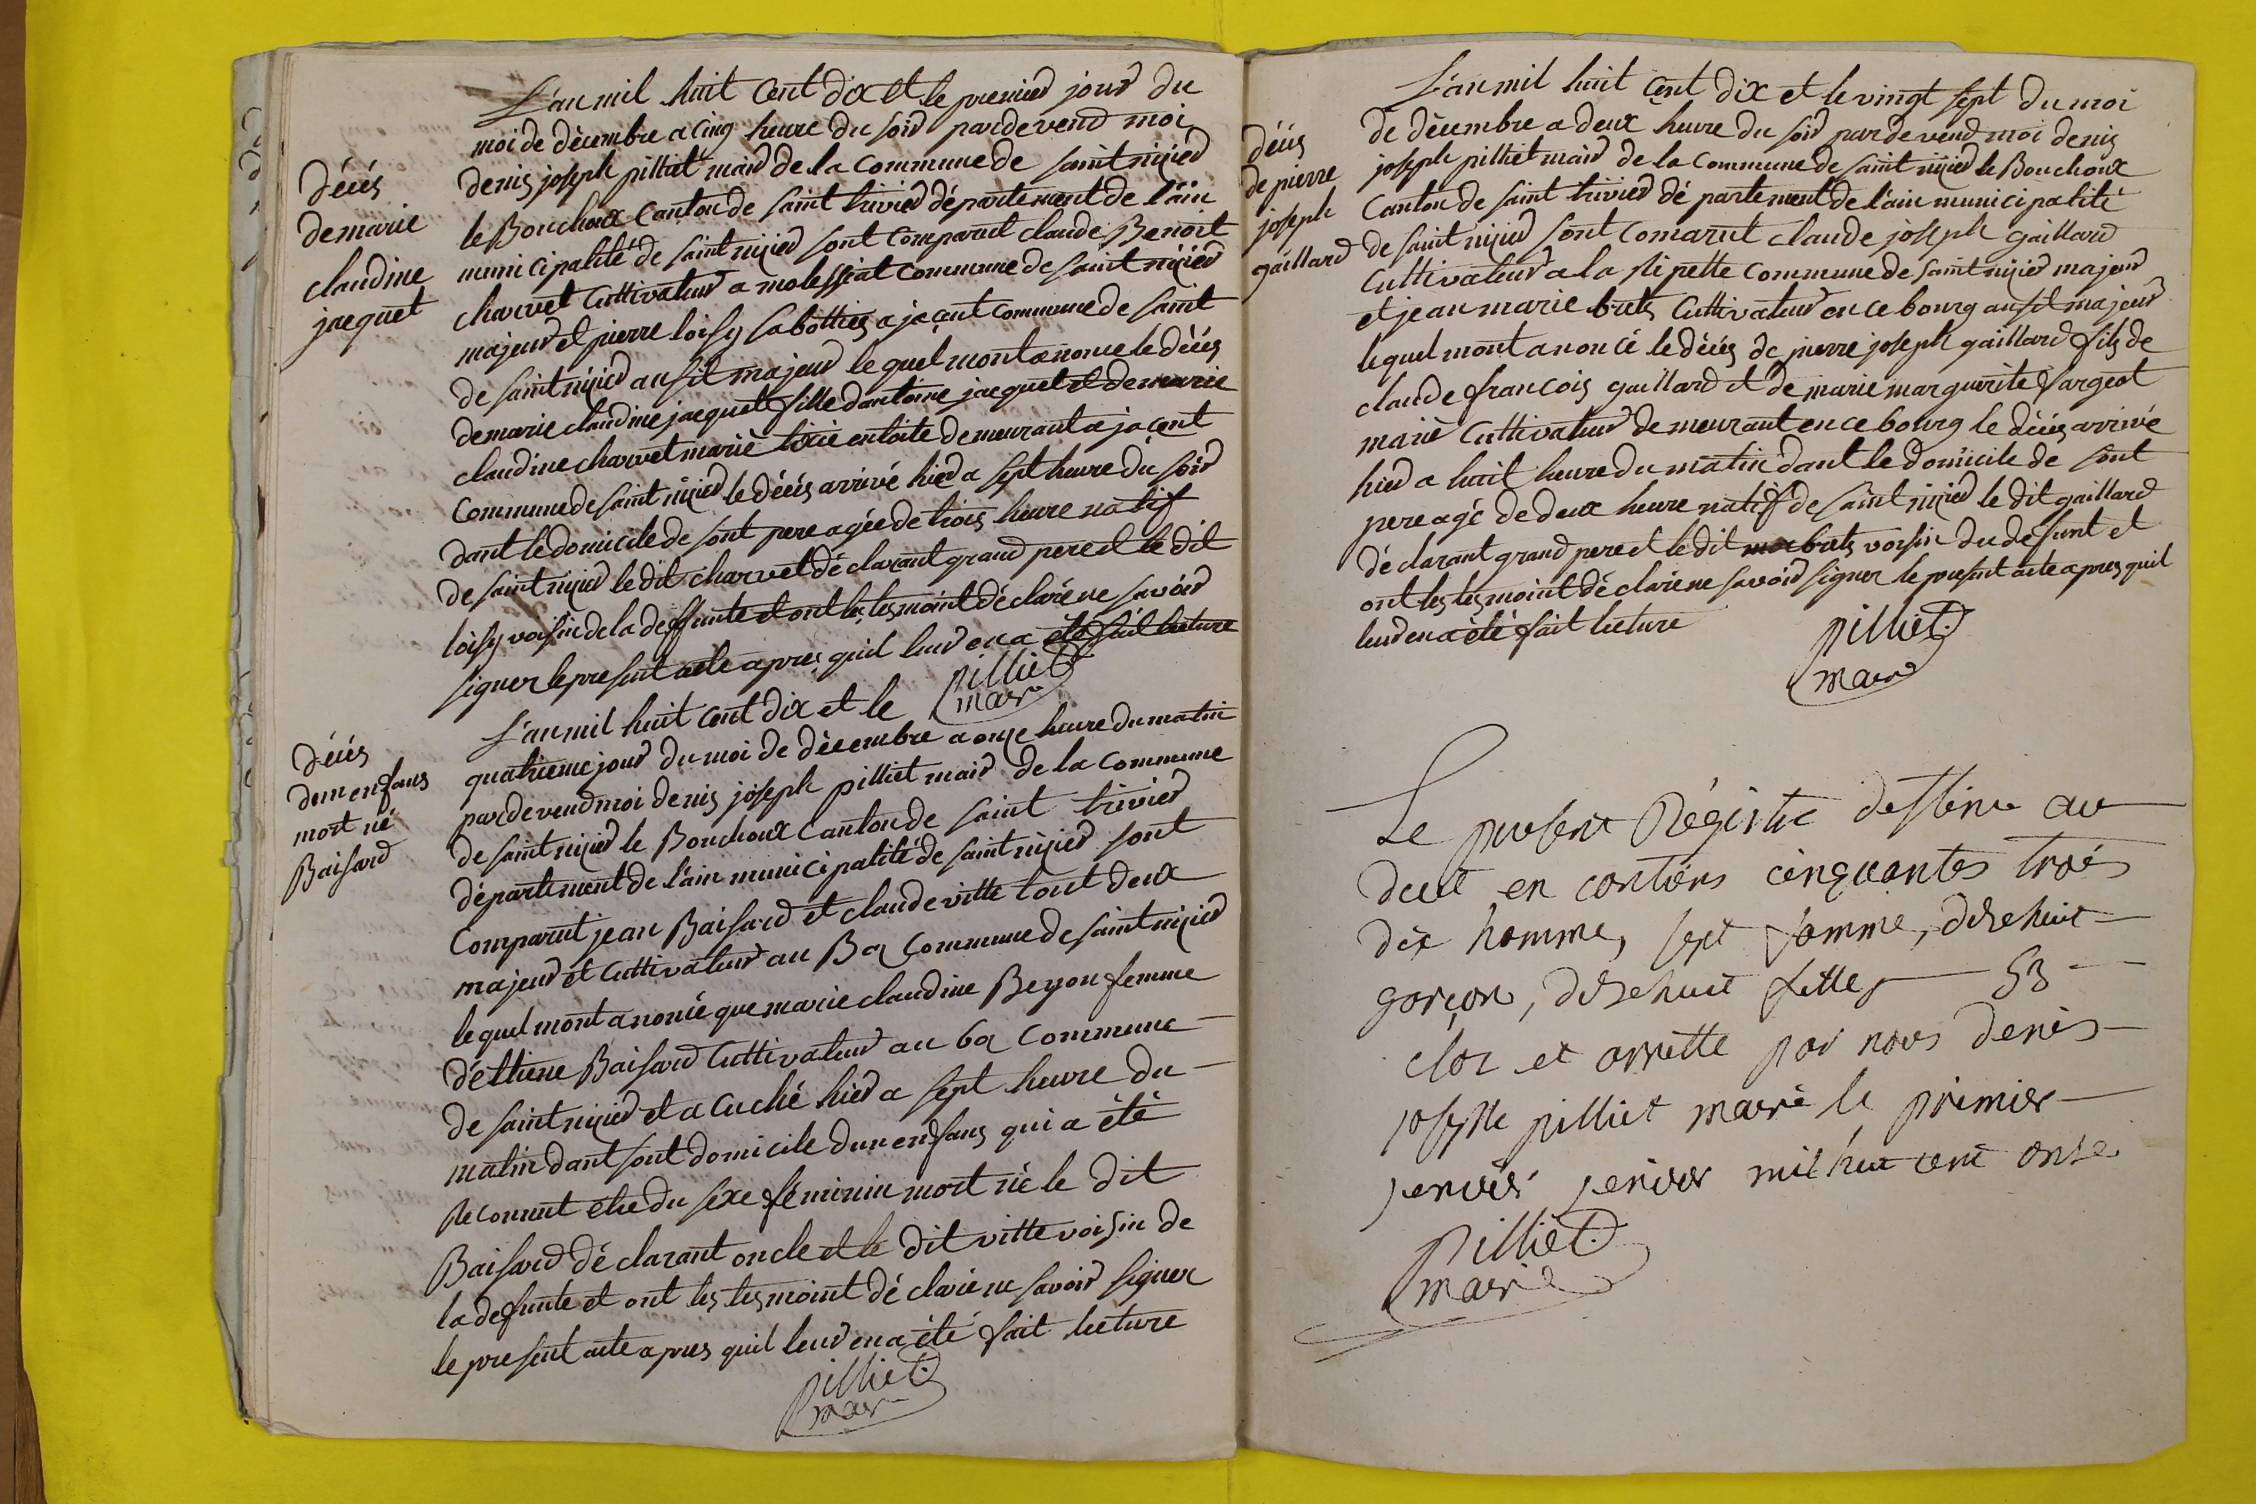 décés
de marie
claudine
jacquet
L'an mil huit cent dix et le premier jour du
moi de dècembre a cinq heure du soir pardevend moi
denis joseph pilliet mair de la commune de saint nizier
le Bouchoux canton de saint trivier département de l'ain
municipalité de saint nizier sont comparut claude Benoit
charvet cultivateur a molessiat commune de saint nizier
majeur et pierre loisy sabottier a jacent commune de saint
de saint nizier aussil majeur le quel mont anonce le décés
de marie claudine jacquet fille dantoine jacquet et de marie
claudine charvet marié demeurant a jacent
commune de saint nizier le décés arrivé hier a sept heure du soir
dant le domicile de sont pere agée de trois heure natif
de saint nizier le dit charvet déclarant grand pere et le dit
loisy voisin de la deffunte et ont les tesmoint déclaré ne savoir
signer le present acte apres quil leur en a été fait lecture
pilliet
mair
décés
dun enfans
mort né
Baisard
L'an mil huit cent dix et le
quatrieme jour du moi de dècembre a onze heure du matin
pardevend moi denis joseph pilliet mair de la commune
de saint nizier le Bouchoux canton de saint trivier
département de l'ain municipalité de saint nizier sont
comparut jean Baisard et claude vitte tout deux
majeur et cultivateur au Ba commune de saint nizier
le quel mont anoncé que marie claudine Beyon femme
d'éttiene Baisard cultivateur au ba commune
de saint nizier et a cuché hier a sept heure du
matin dant sont domicile dun endfans qui a été
reconnut etre du sexe féminin mort né le dit
Baisard déclarant oncle et le dit vitte voisin de
la defunte et ont les tesmoint déclarie ne savoir signer
le present acte apres quil leur en a été fait lecture
pilliet
mair
décés
de pierre
joseph
gaillard
L'an mil huit cent dix et le vingt sept du moi
de décembre a deux heure du soir pardevend moi denis
joseph pilliet mair de la commune de saint nizier le Bouchoux
canton de saint trivier département de l'ain municipalité
de saint nizier sont comarut claude joseph gaillard
cultivateur a la ripette commune de saint nizier majeur
et jean marie buts cultivateur en ce bourg aussil majeur
le quel mont anoncé le décés de pierre joseph gaillard fils de
claude francois gaillard et de marie marguerite fargeot
marié cultivateur demeurant en ce bourg le décés arrivé
hier a huit heure du matin dant le domicile de sont
pere agé de deux heure natif de saint nizier le dit gaillard
déclarant grand pere et le dit buts voisin du defunt et
ont les tesmoint déclarie ne savoir signer le present acte apres quil
leur en a été fait lecture
pilliet
mair
Le present Régistre destine au
deet en contiens cinquantes trois
dix homme, sept famme, dixehuit
garçon, dixehuit fille 53
clos et arrette par nous denis
joseph pilliet maire le primier
janvier mil huit cent onse
pilliet
maire